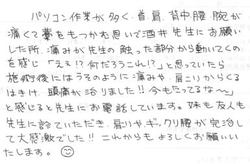 パソコン作業が多く、首、肩、背中腰、腕が
痛くて藁をもつかむ思いで酒井先生にお願い
した所、痛みが先生の触った部分から動いてくの
を感じ「ええ!?何だろうこれ!?」と思っていたら
施術後にはうそのように痛みや、肩こりからくる
はきけ、頭痛が治りました!!今もだってるな〜、
と感じると先生にお電話しています。妹も友人も
先生に診ていただき、肩こりやギックリ腰が完治し
て大感激でした!!これからもよろしくお願いい
たします。